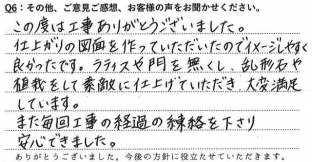 Q6：その他、ご意見ご感想、お客様の声をお聞かせください。
この度は工事ありがとうございました。
仕上がりの図面を作っていただいたのでイメージしやすく
良かったです。ラティスや門を無くし、乱形石や
植栽をして素敵に仕上げていただき、大変満足
しています。
また毎回工事の経過の連絡を下さり
安心できました。
ありがとうございました。今後の方針に役立たせていただきます。